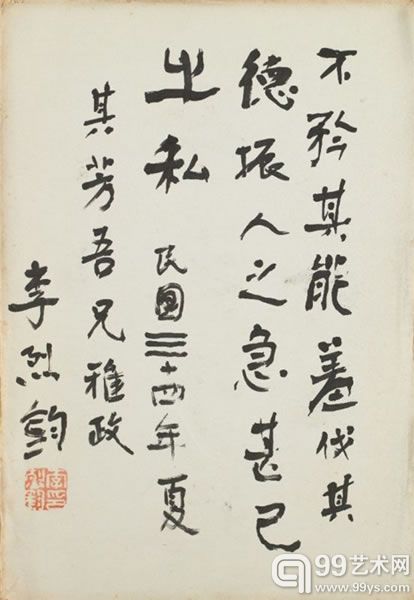 不矜其能羞伐其
德振人之急甚己
之私 民國三十四年夏
其芳吾兄雅政
李烈鈞
99艺术网
www.99ys.com